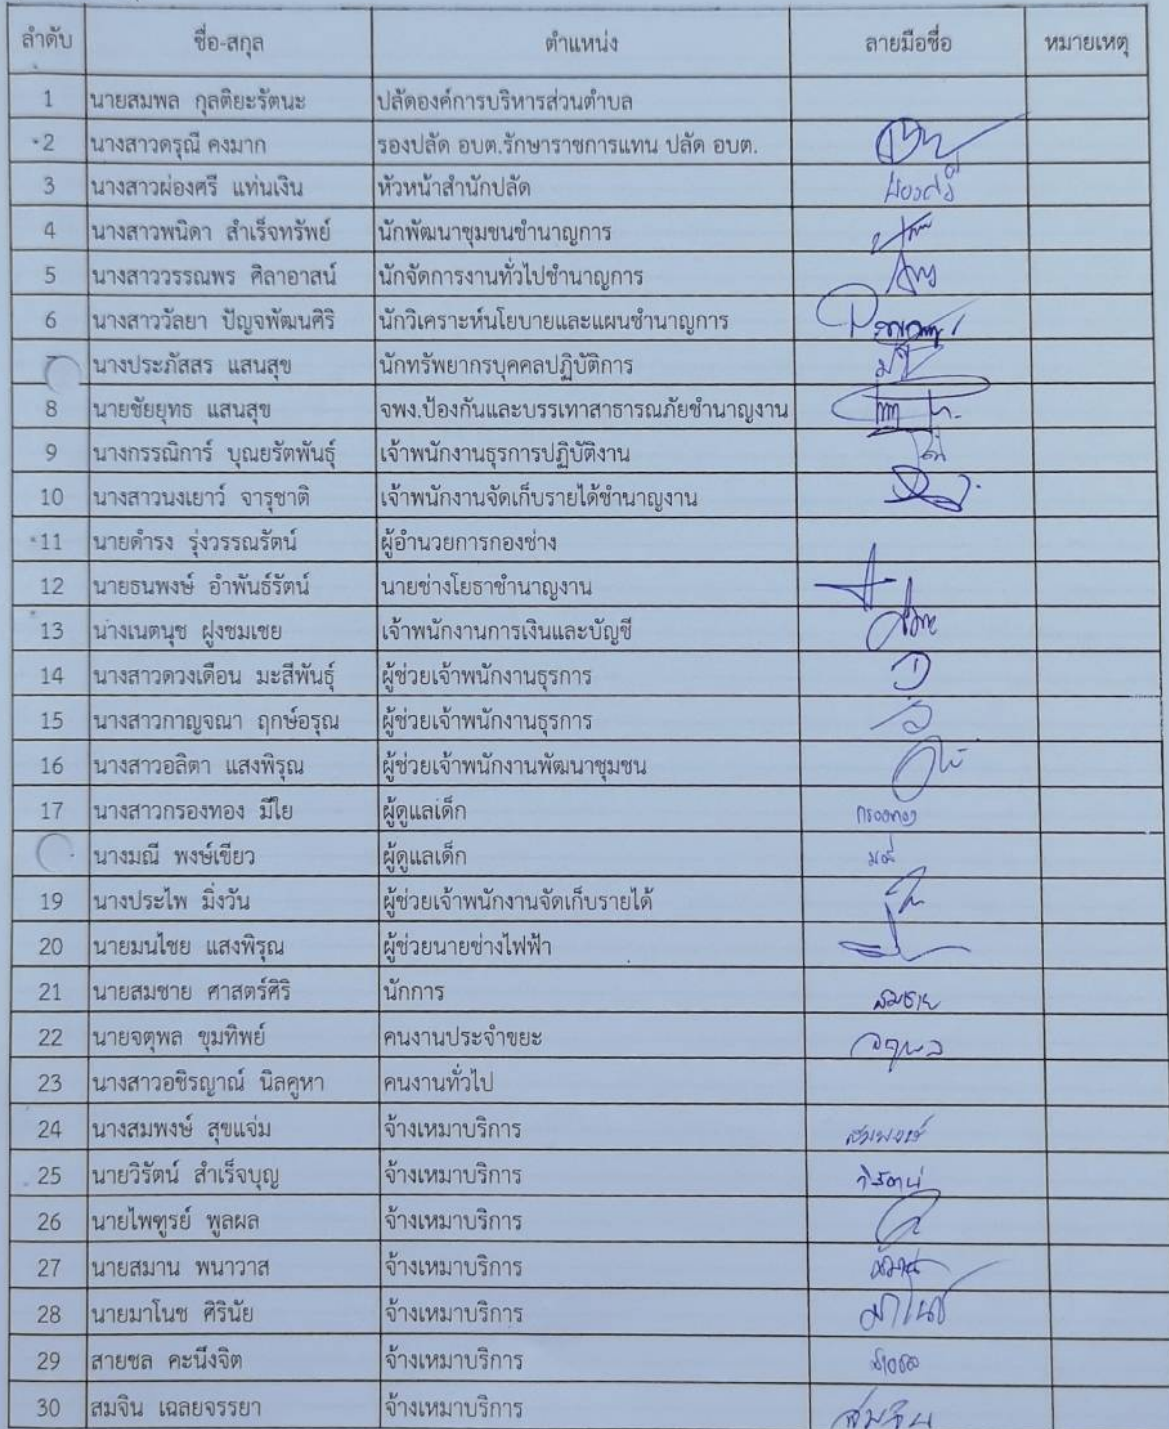 ลำดับ ชื่อ-สกุล ตำแหน่ง ลายมือชื่อ หมายเหตุ
1 นายสมพล กุลติยะรัตนะ ปลัดองค์การบริหารส่วนตำบล
2 นางสาวดรุณี คงมาก รองปลัด อบต.รักษาราชการแทน ปลัด อบต.
3 นางสาวผ่องศรี แท่นเงิน หัวหน้าสำนักปลัด ผ่องศรี
4 นางสาวพนิดา สำเร็จทรัพย์ นักพัฒนาชุมชนชำนาญการ
5 นางสาววรรณพร ศิลาอาสน์ นักจัดการงานทั่วไปชำนาญการ
6 นางสาววัลยา ปัญจพัฒนศิริ นักวิเคราะห์นโยบายและแผนชำนาญการ
นางประภัสสร แสนสุข นักทรัพยากรบุคคลปฏิบัติการ
8 นายชัยยุทธ แสนสุข จพง.ป้องกันและบรรเทาสาธารณภัยชำนาญงาน
9 นางกรรณิการ์ บุณยรัตพันธุ์ เจ้าพนักงานธุรการปฏิบัติงาน
10 นางสาวนงเยาว์ จารุชาติ เจ้าพนักงานจัดเก็บรายได้ชำนาญงาน
11 นายดำรง รุ่งวรรณรัตน์ ผู้อำนวยการกองช่าง
12 นายธนพงษ์ อำพันธ์รัตน์ นายช่างโยธาชำนาญงาน
13 นางเนตนุช ฝูงชมเชย เจ้าพนักงานการเงินและบัญชี
14 นางสาวดวงเดือน มะสีพันธุ์ ผู้ช่วยเจ้าพนักงานธุรการ
15 นางสาวกาญจณา ฤกษ์อรุณ ผู้ช่วยเจ้าพนักงานธุรการ
16 นางสาวอลิตา แสงพิรุณ ผู้ช่วยเจ้าพนักงานพัฒนาชุมชน
17 นางสาวกรองทอง มีใย ผู้ดูแลเด็ก กรองทอง
นางมณี พงษ์เขียว ผู้ดูแลเด็ก มณี
19 นางประไพ มิ่งวัน ผู้ช่วยเจ้าพนักงานจัดเก็บรายได้
20 นายมนไชย แสงพิรุณ ผู้ช่วยนายช่างไฟฟ้า
21 นายสมชาย ศาสตร์ศิริ นักการ สมชาย
22 นายจตุพล ขุมทิพย์ คนงานประจำขยะ จตุพล
23 นางสาวอชิรญาณ์ นิลคูหา คนงานทั่วไป
24 นางสมพงษ์ สุขแจ่ม จ้างเหมาบริการ สมพงษ์
25 นายวิรัตน์ สำเร็จบุญ จ้างเหมาบริการ วิรัตน์
26 นายไพฑูรย์ พูลผล จ้างเหมาบริการ
27 นายสมาน พนาวาส จ้างเหมาบริการ สมาน
28 นายมาโนช ศิรินัย จ้างเหมาบริการ มาโนช
29 สายชล คะนึงจิต จ้างเหมาบริการ สายชล
30 สมจิน เฉลยจรรยา จ้างเหมาบริการ สมจิน